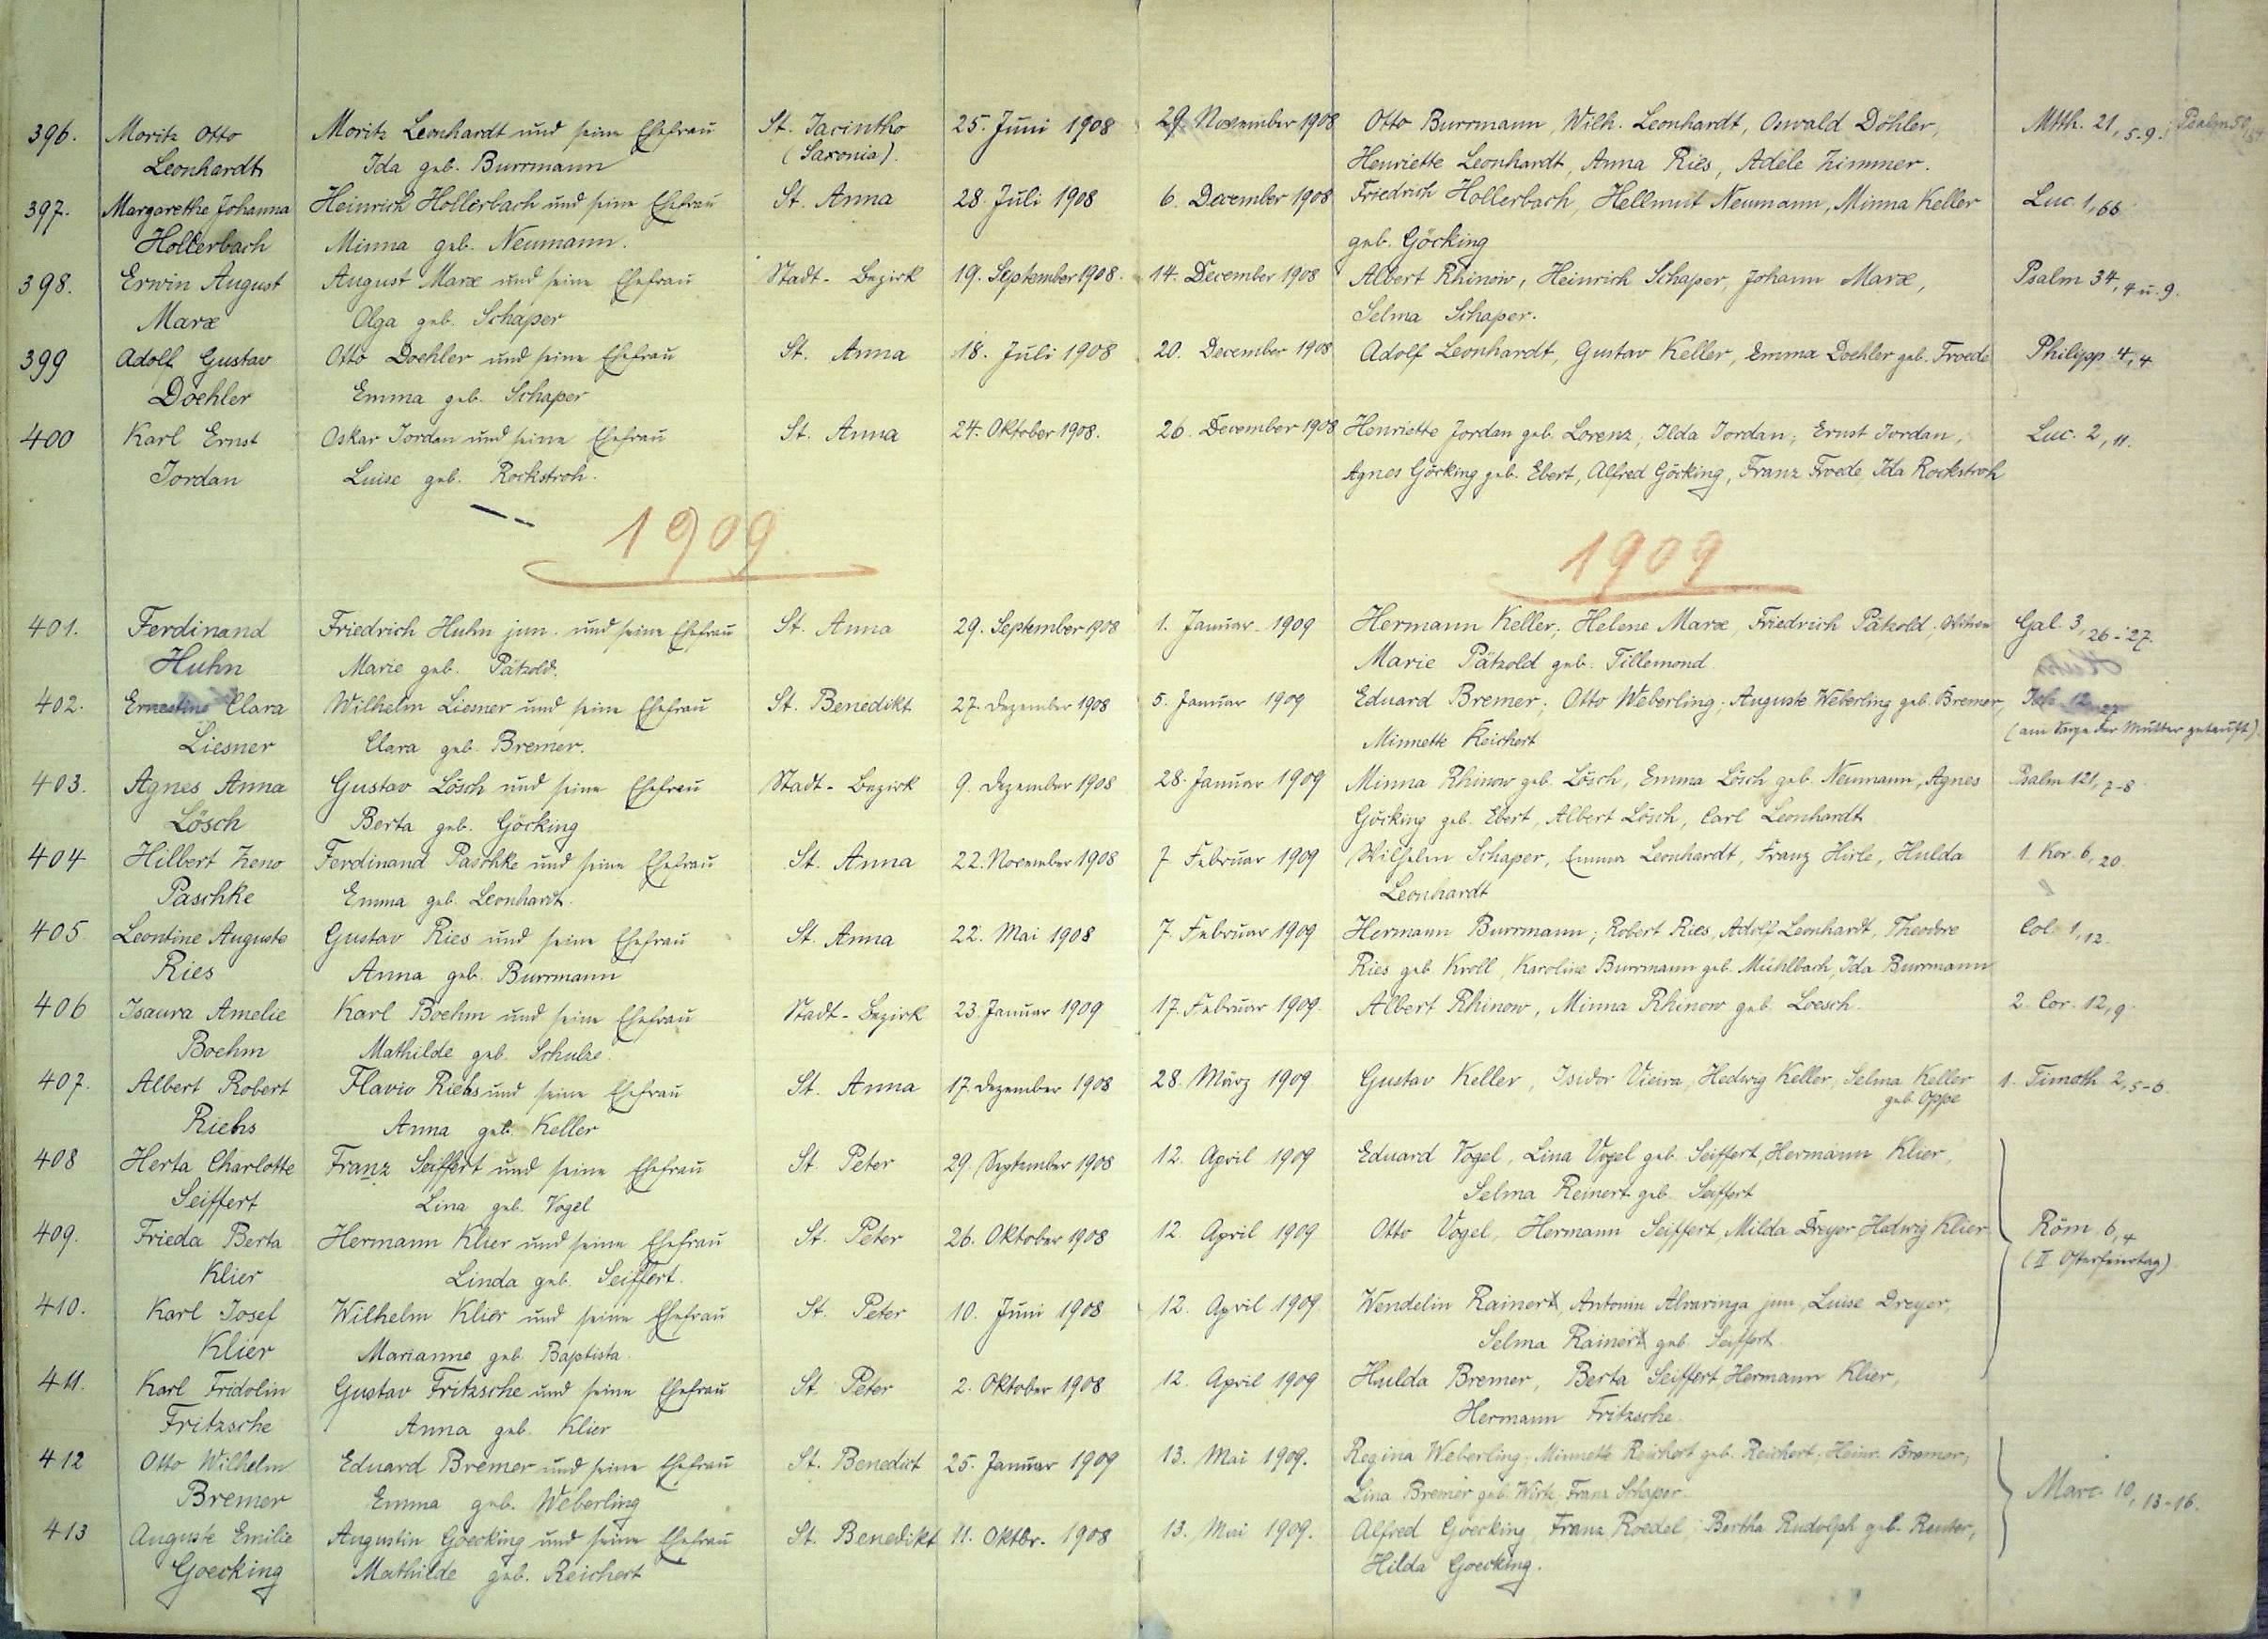 396. Moritz Otto Moritz Leonhardt und seine Ehefrau St. Jacintho 25. Juni 1908 29. November 1908 Otto Burrmann, Wilh. Leonhardt, Oswald Döhler, Mtth. 21, 5-9. Psalm 50,
Leonhardt Ida geb. Burrmann (Saxonia). Henriette Leonhardt, Anna Ries, Adele Zimmer.
397. Margarethe Johanna Heinrich Hollerbach und seine Ehefrau St. Anna 28. Juli 1908 6. December 1908 Friedrich Hollerbach, Hellmut Neumann, Minna Keller Luc. 1, 66
Hollerbach Minna geb. Neumann. geb. Göcking
398. Erwin August August Marx und seine Ehefrau Stadt-Bezirk 19. September 1908. 14. December 1908 Albert Rhinow, Heinrich Schaper, Johann Marx, Psalm 34, 4 u. 9.
Marx Olga geb. Schaper Selma Schaper.
399 Adolf Gustav Otto Doehler und seine Ehefrau St. Anna 18. Juli 1908 20. December 1908 Adolf Leonhardt, Gustav Keller, Emma Doehler geb. Froede Philipp. 4, 4
Doehler Emma geb. Schaper
400 Karl Ernst Oskar Jordan und seine Ehefrau St. Anna 24. Oktober 1908. 26. December 1908 Henriette Jordan geb. Lorenz, Ilda Jordan, Ernst Jordan, Luc. 2, 11.
Jordan Luise geb. Rockstroh. Agnes Göcking geb. Ebert, Alfred Göcking, Franz Froede, Ida Rockstroh
1909 1909
401. Ferdinand Friedrich Huhn jun. und seine Ehefrau St. Anna 29. September 1908 1. Januar 1909 Hermann Keller, Helene Marx, Friedrich Pätzold, Witwe Gal. 3, 26-27.
Huhn Marie geb. Pätzold. Marie Pätzold geb. Tillemond.
402. Ernestine Clara Wilhelm Liesner und seine Ehefrau St. Benedikt 27. Dezember 1908 5. Januar 1909 Eduard Bremer; Otto Weberling; Auguste Weberling geb. Bremer, Joh. 12, 27
Liesner Clara geb. Bremer. Minnette Reichert (am Sarge der Mutter getauft)
403. Agnes Anna Gustav Lösch und seine Ehefrau Stadt-Bezirk 9. Dezember 1908 28. Januar 1909 Minna Rhinow geb. Lösch, Emma Lösch geb. Neumann, Agnes Psalm 121, 7-8
Lösch Berta geb. Göcking Göcking geb. Ebert, Albert Lösch, Carl Leonhardt
404 Hilbert Zeno Ferdinand Paschke und seine Ehefrau St. Anna 22. November 1908 7. Februar 1909 Wilhelm Schaper, Emma Leonhardt, Franz Hirle, Hulda 1. Kor. 6, 20.
Paschke Emma geb. Leonhardt. Leonhardt
405 Leontine Auguste Gustav Ries und seine Ehefrau St. Anna 22. Mai 1908 7. Februar 1909 Hermann Burrmann; Robert Ries, Adolf Leonhardt, Theodore Col. 1, 12.
Ries Anna geb. Burrmann Ries geb. Kroll, Karoline Burrmann geb. Mühlbach, Ida Burrmann
406 Isaura Amelie Karl Boehm und seine Ehefrau Stadt-Bezirk 23. Januar 1909 17. Februar 1909. Albert Rhinow, Minna Rhinow geb. Loesch. 2. Cor. 12, 9.
Boehm Mathilde geb. Schulze.
407. Albert Robert Flavio Riehs und seine Ehefrau St. Anna 17. Dezember 1908 28. März 1909 Gustav Keller, Isidor Vieira, Hedwig Keller, Selma Keller 1. Timoth. 2, 5-6.
geb. Oppe
Riehs Anna geb. Keller
408 Herta Charlotte Franz Seiffert und seine Ehefrau St. Peter 29. September 1908 12. April 1909 Eduard Vogel, Lina Vogel geb. Seiffert, Hermann Klier,
Seiffert Lina geb. Vogel Selma Reinert geb. Seiffert
409. Frieda Berta Hermann Klier und seine Ehefrau St. Peter 26. Oktober 1908 12. April 1909 Otto Vogel, Hermann Seiffert, Milda Dreyer, Hedwig Klier Röm. 6, 4
Klier Linda geb. Seiffert. (II Osterfeiertag)
410. Karl Josef Wilhelm Klier und seine Ehefrau St. Peter 10. Juni 1908 12. April 1909 Wendelin Rainert, Antonin Alvaringa jun, Luise Dreyer,
Klier Marianne geb. Baptista. Selma Rainert geb. Seiffert
411. Karl Fridolin Gustav Fritzsche und seine Ehefrau St. Peter 2. Oktober 1908 12. April 1909 Hulda Bremer, Berta Seiffert, Hermann Klier,
Fritzsche Anna geb. Klier Hermann Fritzsche.
412 Otto Wilhelm Eduard Bremer und seine Ehefrau St. Benedict 25. Januar 1909 13. Mai 1909. Regina Weberling, Minnette Reichert geb. Reichert, Heinr. Bremer,
Bremer Emma geb. Weberling Lina Bremer geb. Wirth, Franz Schaper. Marc. 10, 13-16.
413 Auguste Emilie Augustin Goecking und seine Ehefrau St. Benedikt 11. Oktbr. 1908 13. Mai 1909. Alfred Goecking, Franz Roedel, Bertha Rudolph geb. Reuter,
Goecking Mathilde geb. Reichert Hilda Goecking.